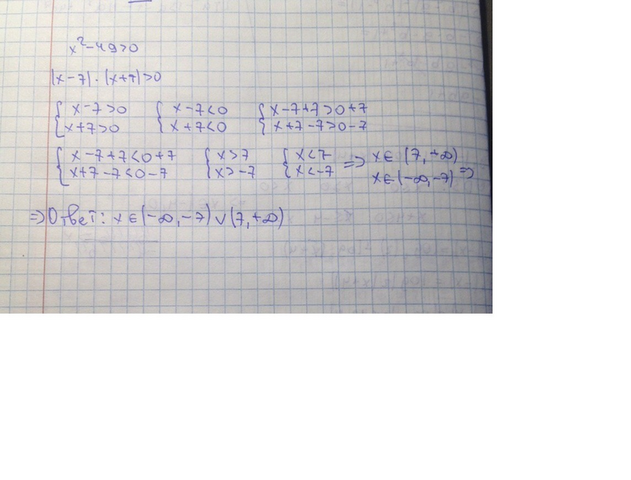 x²-49>0
(x-7)·(x+7)>0
{x-7>0 {x-7<0 {x-7+7>0+7
{x+7>0 {x+7<0 {x+7-7>0-7
{x-7+7<0+7 {x>7 {x<7 => x∈(7,+∞)
{x+7-7<0-7 {x>-7 {x<-7 x∈(-∞,-7) =>
=> Ответ: x∈(-∞,-7)∪(7,+∞)